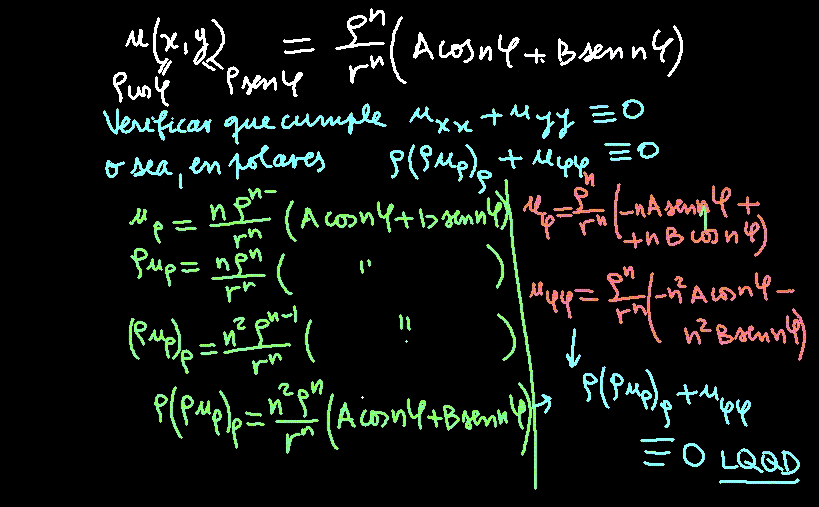 u(x,y) = ρⁿ/rⁿ (A cos nφ + B sen nφ)
ρcosφ ρsenφ
Verificar que cumple u_xx + u_yy ≡ 0
o sea, en polares ρ(ρu_ρ)_ρ + u_φφ ≡ 0
u_ρ = n ρⁿ⁻/rⁿ (A cos nφ + B sen nφ)
ρu_ρ = nρⁿ/rⁿ ( " )
(ρu_ρ)_ρ = n² ρⁿ⁻¹/rⁿ ( " )
ρ(ρu_ρ)_ρ = n² ρⁿ/rⁿ (A cos nφ + B sen nφ) →
u_φ = ρⁿ/rⁿ (-nA sen nφ +
+n B cos nφ)
u_φφ = ρⁿ/rⁿ (-n² A cos nφ -
n² B sen nφ)
↓
ρ(ρu_ρ)_ρ + u_φφ
≡ 0 LQQD